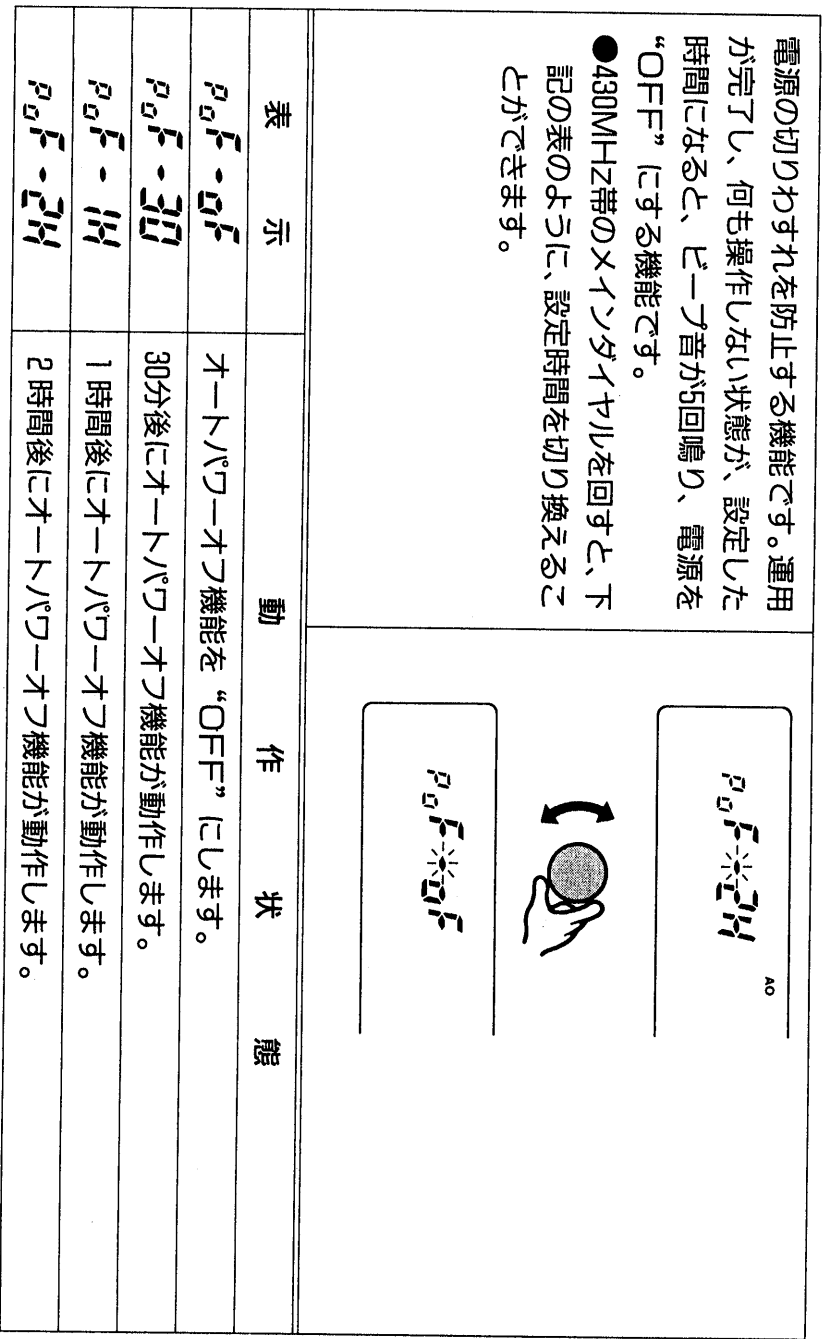 電源の切りわすれを防止する機能です。運用
が完了し、何も操作しない状態が、設定した
時間になると、ビープ音が5回鳴り、電源を
“OFF”にする機能です。
●430MHz帯のメインダイヤルを回すと、下
記の表のように、設定時間を切り換えるこ
とができます。
PoF・2H
AO
PoF・oF
表 示 動 作 状 態
PoF・oF オートパワーオフ機能を“OFF”にします。
PoF・30 30分後にオートパワーオフ機能が動作します。
PoF・1H 1時間後にオートパワーオフ機能が動作します。
PoF・2H 2時間後にオートパワーオフ機能が動作します。